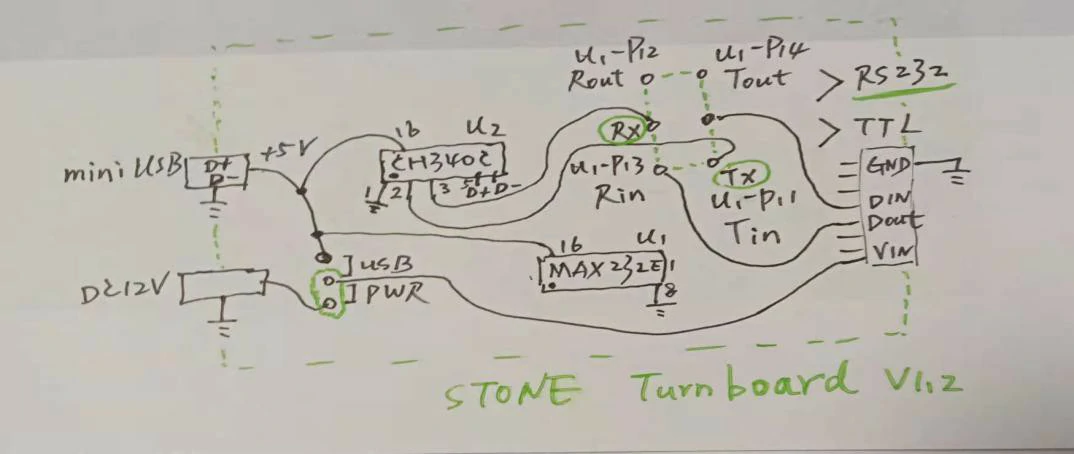 U1-P12
U1-P14
Rout
Tout
> RS232
> TTL
Rx
16
U2
+5V
mini USB
D+
D-
CH340C
1
2
3
5
D+ D-
U1-P13
Rin
TX
U1-P11
Tin
GND
DIN
Dout
VIN
16
U1
MAX232E
1
8
] USB
] PWR
DC12V
STONE Turnboard V1.2